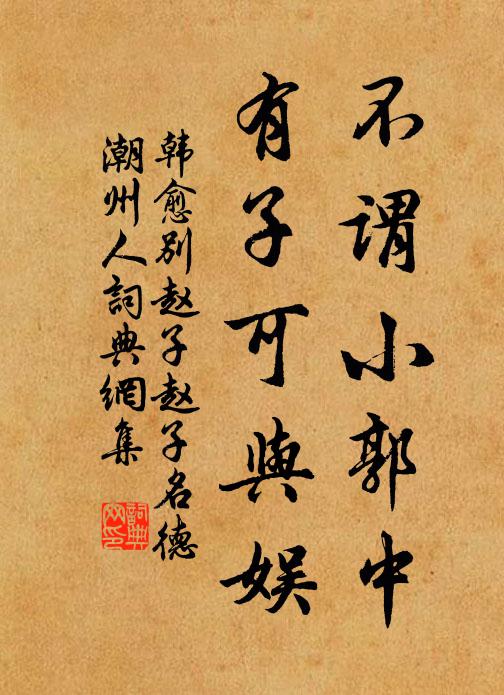 不謂小郭中
有子可與娱
韩愈别赵子赵子名德
潮州人詞典網集
詞典
网印